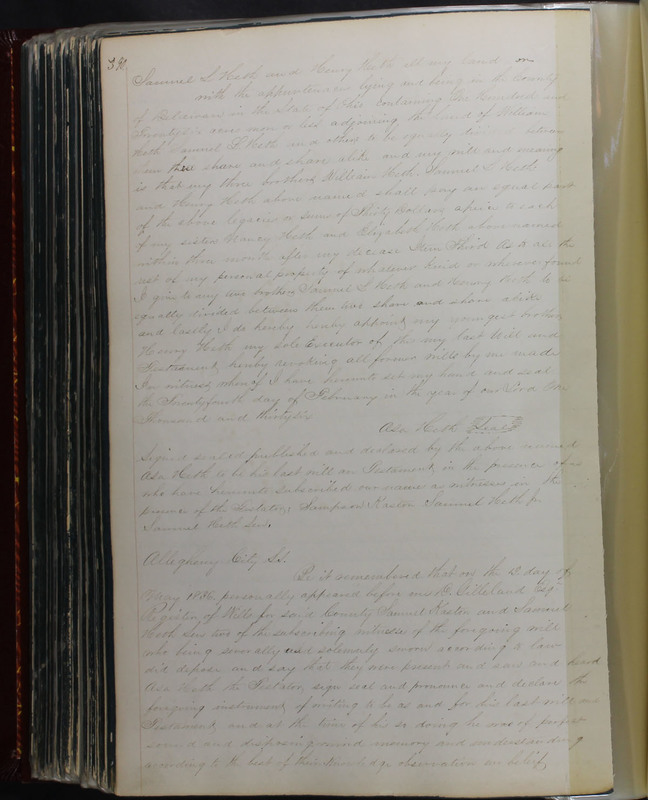 390
Samuel L Heth and Henry Heth all my land on
with the appurtenances lying and being in the County
of Delaware in the State of Ohio containing One Hundred and
Twenty acres more or less adjoining the land of William
Heth Samuel L Heth and others to be equaly between
them three share and share alike and my will and meaning
is that my three brothers William Heth Samuel L Heth
and Henry Heth above named shall pay an equal part
of the above legacies or sums of Thirty Dollars apiece to each
of my sisters Nancy Heth and Elizabeth Heth above named
within three month after my decease Item Third As to all the
rest of my personal property of whatever kind or wherever found
I give to my two brothers Samuel L Heth and Henry Heth to be
equally divided between them two share and share alike
and lastly I do hereby hereby appoint my youngest brother
Henry Heth my sole Executor of this my last Will and
Testament, hereby revoking all former wills by me made
In witness whereof I have hereunto set my hand and seal
the Twentyfourth day of February in the year of our Lord One
thousand and thirtysix
Asa Heth Seal
Signed sealed published and declared by the above named
Asa Heth to be his last will an Testament, in the presence of us
who have hereunto subscribed our names as witnesses in the
presence of the Testator; Sampson Kaston Samuel Heth Jr
Samuel Heth Sen.
Allegheny City S.S.
Be it remembered that on the 12 day of
May 1836, personally appeared before me Gilleland Esqr
Register of Wills for said County Samuel Kaston and Samuel
Heth Sen two of the subscribing witnesses of the foregoing will
who being severally and solemnly sworn according to law
did depose and say that they were present and saw and heard
Asa Heth the Testator, sign seal and pronounce and declare the
foregoing instrument of writing to be as and for his last will and
Testament, and at the time of his so doing he was of perfect
sound and disposing mind memory and understanding
according to the best of their knowledge observation an belief,